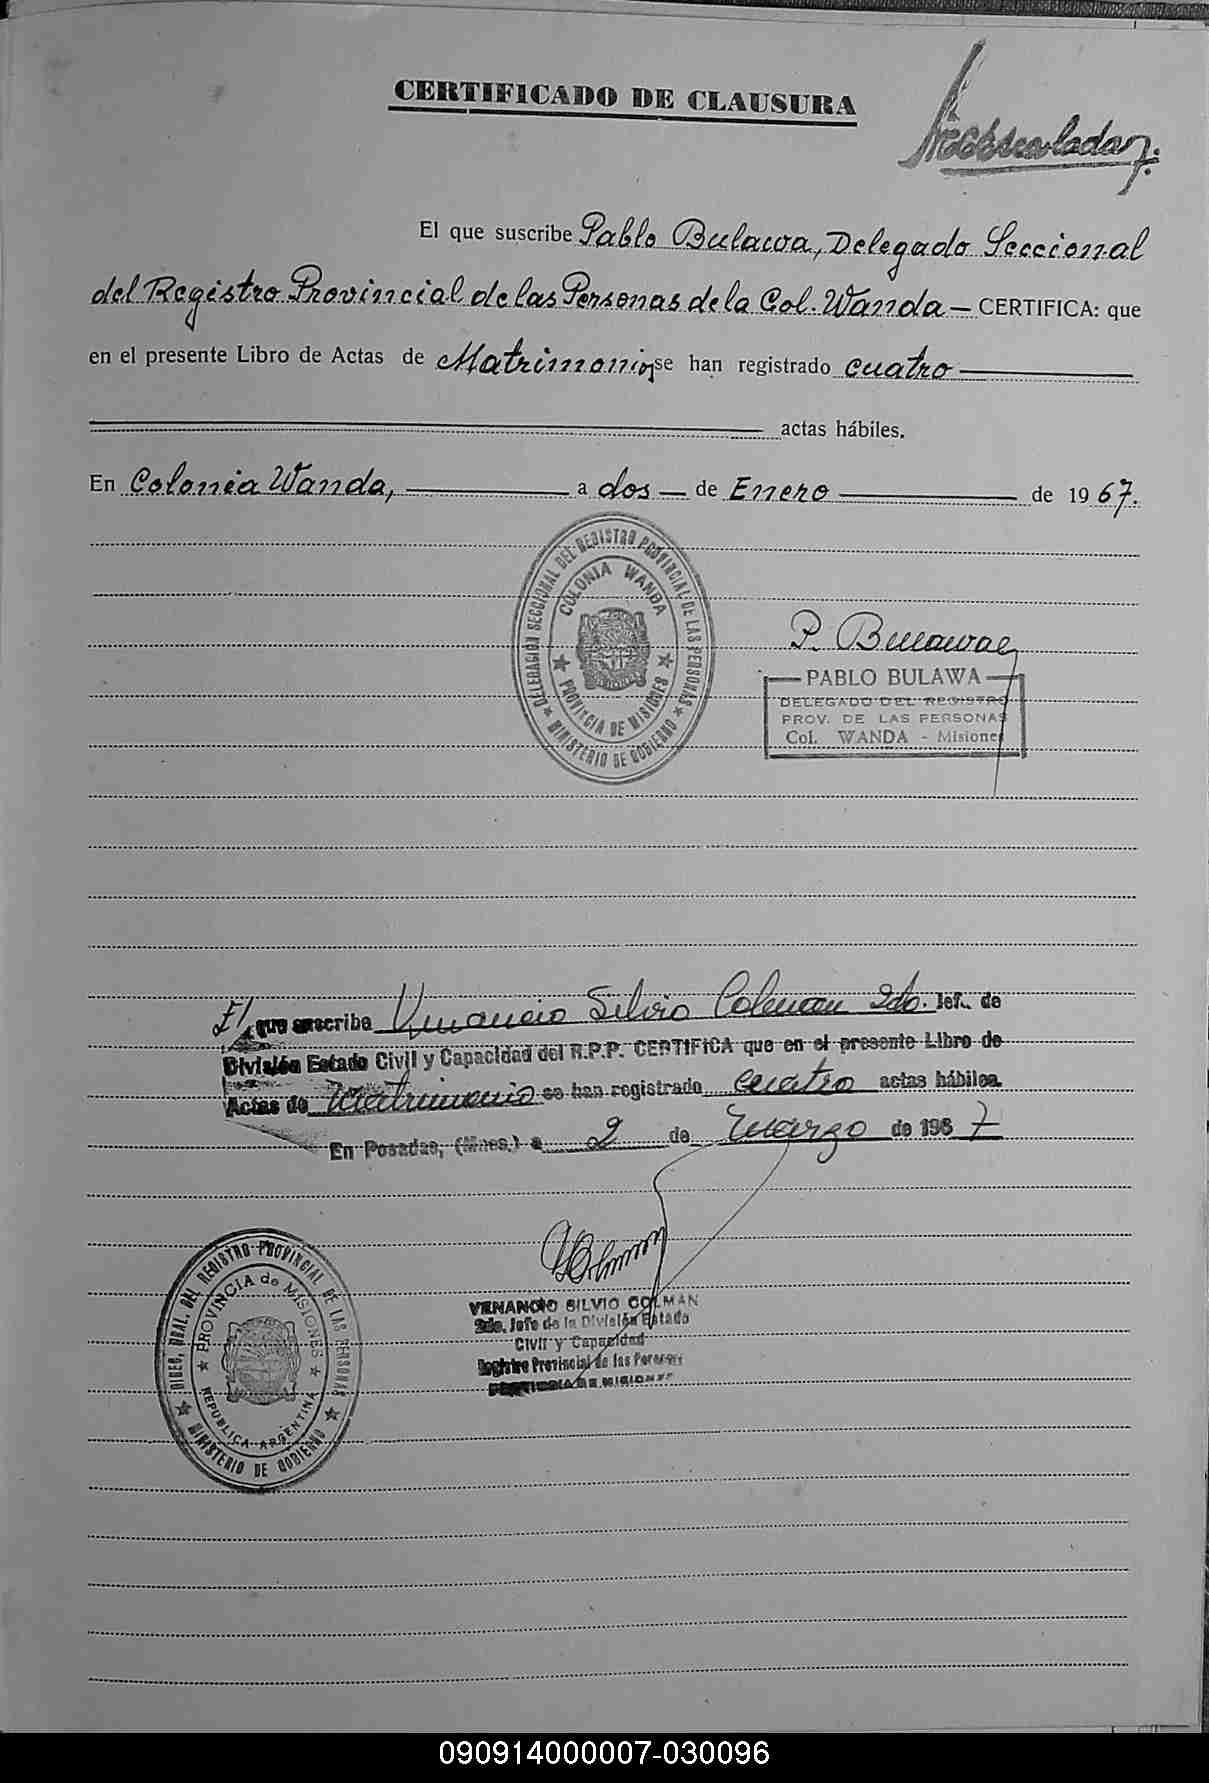 CERTIFICADO DE CLAUSURA
El que suscribe Pablo Bulawa, Delegado Seccional
del Registro Provincial de las Personas de la Col. Wanda — CERTIFICA: que
en el presente Libro de Actas de Matrimonios se han registrado cuatro
actas hábiles.
En Colonia Wanda, a dos — de Enero de 1967.
DELEGACION SECCIONAL DEL REGISTRO PROVINCIAL DE LAS PERSONAS
COLONIA WANDA
PROVINCIA DE MISIONES
MINISTERIO DE GOBIERNO
P. Bulawa
PABLO BULAWA
DELEGADO DEL REGISTRO
PROV. DE LAS PERSONAS
Col. WANDA - Misiones
El que suscribe Venancio Silvio Colman 2do. Jef. de
División Estado Civil y Capacidad del R.P.P. CERTIFICA que en el presente Libro de
Actas de Matrimonio se han registrado cuatro actas hábiles.
En Posadas, (Mnes.) a 2 de Marzo de 1967
DIREC. GRAL. DEL REGISTRO PROVINCIAL DE LAS PERSONAS
PROVINCIA de MISIONES
REPUBLICA ARGENTINA
MINISTERIO DE GOBIERNO
VSColman
VENANCIO SILVIO COLMAN
2do. Jefe de la División Estado
Civil y Capacidad
Registro Provincial de las Personas
PROVINCIA DE MISIONES
090914000007-030096